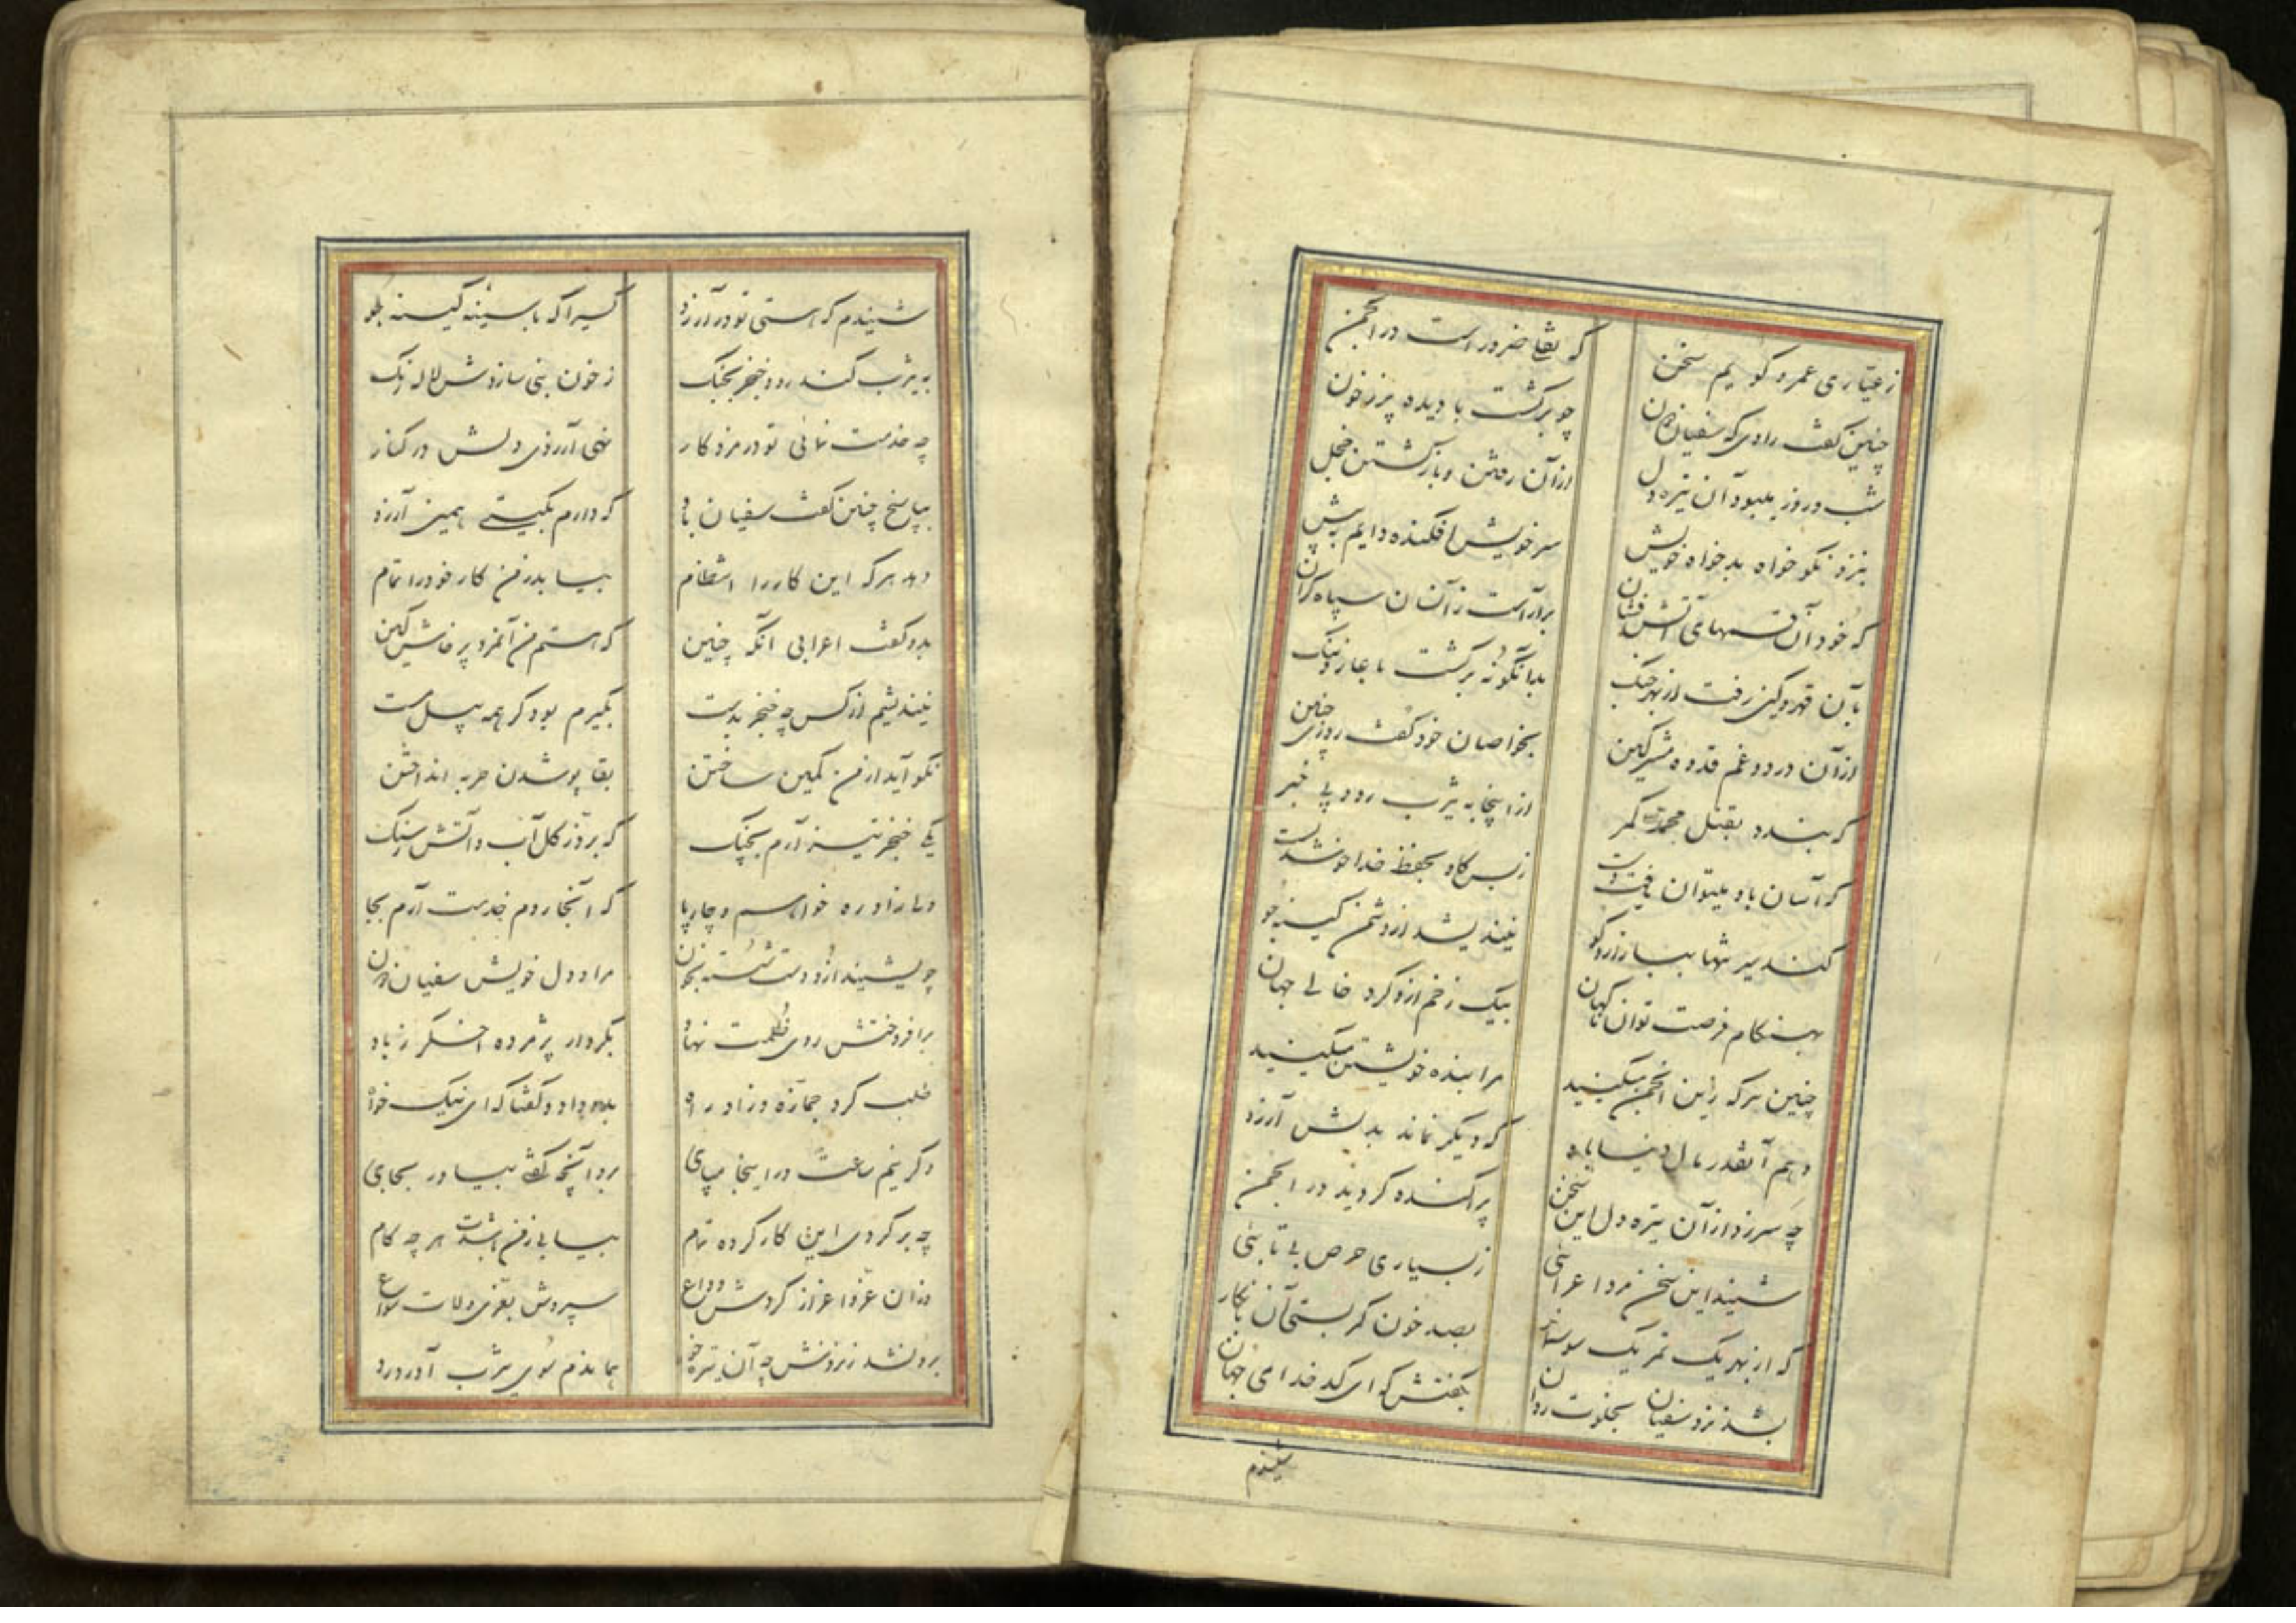 ز عیاری عمرو گویم سخن که نقلی ضرور است در انجمن
چنین گفت راوی که سفیان دون چو برگشت با دیده پر ز خون
شب و روز میبود آن تیره دل از آن رفتن و بازگشتن خجل
بنزد نکو خواه بدخواه خویش سر خویش افکنده دایم به پیش
که خود آن قسمهای آتش فشان برآراست ز آنسان سپاه گران
بآن قهر و کین رفت از بهر جنگ بدانگونه برگشت با عار و ننگ
از آن درد و غم قدوه مشرکین بخواصان خود گفت روزی چنین
که بندد بقتل محمد کمر از اینجا به یثرب رود بی خبر
که آسان باو میتوان یافت دست ز بس کاو بحفظ خدا خوشدلست
کند سیر تنها ببازار و کو نیندیشد از دشمن کینه جو
بهنگام فرصت توان ناگهان بیک زخم ازو کرد خالی جهان
چنین هر که زین انجمن میکنید مرا بنده خویشتن میکنید
دهم آنقدر مال دنیا باو که دیگر نماند بدلش آرزو
چه سر زد از آن تیره دل این سخن پراکنده گردید در انجمن
شنید این سخن مرد اعرابئی ز بسیاری حرص بی تابئی
که از بهر یک تمر یک سوسمار بصد خون کمر بستی آن نابکار
بشد نزد سفیان بخلوت روان بگفتش که ای کدخدای جهان
شنیدم
شنیدم که هستی تو در آرزو کسیرا که با سینه کینه جو
به یثرب کند رو و خنجر بچنگ ز خون نبی سازدش لاله رنگ
چه خدمت نمائی تو در مزد کار نهی آرزوی دلش در کنار
بپاسخ چنین گفت سفیان باو که دارم بگیتی همین آرزو
دهد هر که این کار را انتظام بیابد ز من کار خود را تمام
بدو گفت اعرابی آنگه چنین که هستم من آنمرد پرخاش کین
نیندیشم از کس چه خنجر بدست بگیرم بود گر همه پیل مست
نکو آید از من کمین ساختن بقا پوشدن حربه انداختن
یکی خنجر تیز آرم بچنگ که برّد ز کل آب و آتش ز سنگ
ولی زاد ره خواهم و چارپا که آنجا روم خدمت آرم بجا
چو بشنید ازو دست شسته بخون مراد دل خویش سفیان دون
برافروختش روی ظلمت نهاد بکردار پژمرده اخگر ز باد
طلب کرد جمازه و زاد راه بدو داد و گفتا که ای نیک خواه
دگر نیم ساعت در اینجا مپای برو آنچه گفتی بیاور بجای
چه برگردی این کار کرده تمام بیابی ز من باشدت هر چه کام
وزان عز و اعزاز کردش وداع سپردش بعزی و لات و سواع
برون شد ز نزدش چه آن تیره خو هماندم سوی یثرب آورد رو